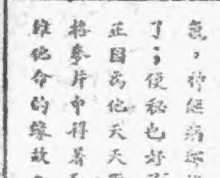 氣，神經病
了；便秘也好
正因為他天天
將麥片中得著
維他命的緣故